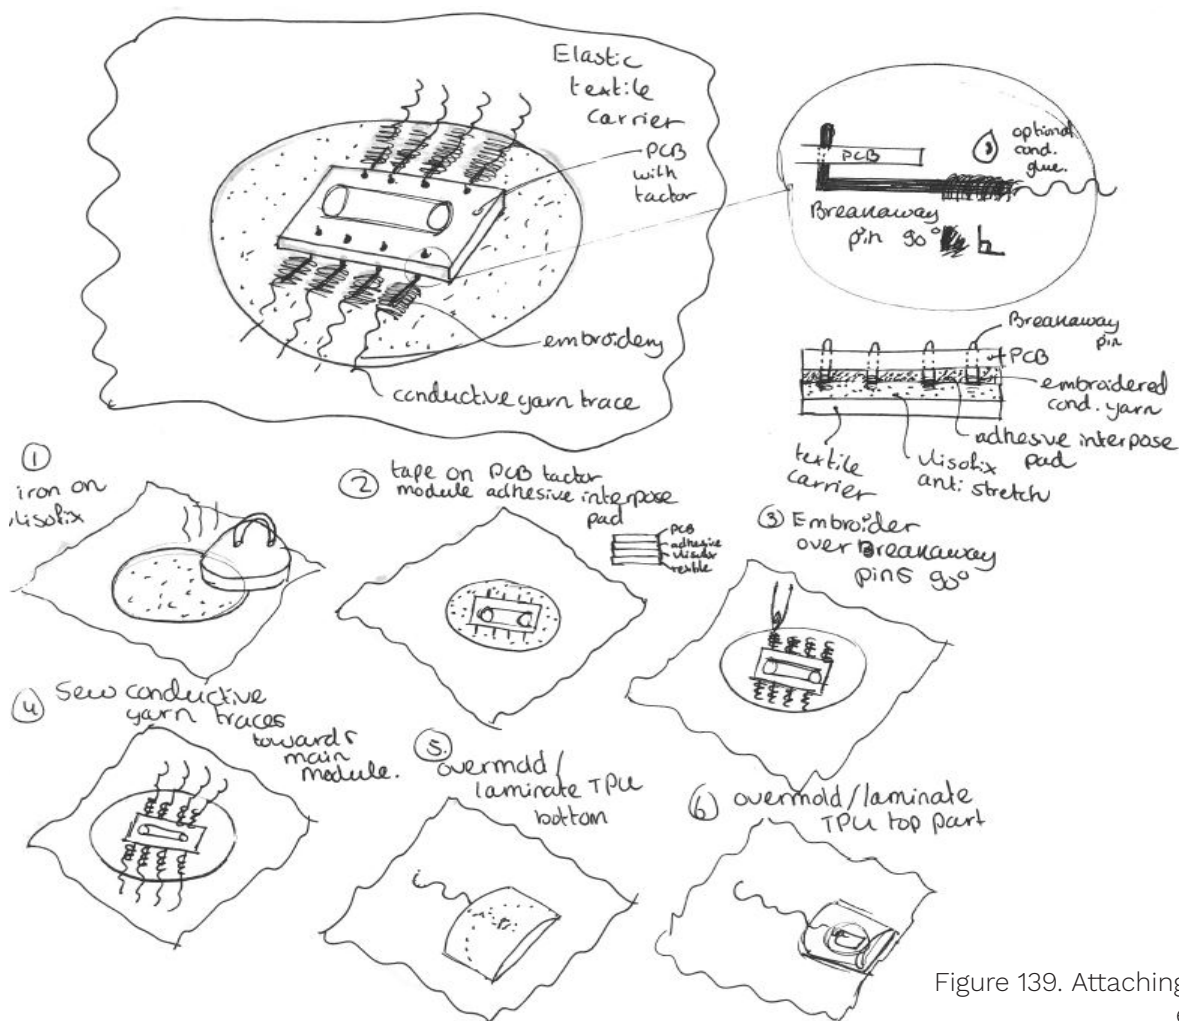 Elastic
textile
carrier
PCB
with
tactor
embroidery
conductive yarn trace
PCB
optional
cond.
glue.
Breakaway
pin 90°
Breakaway
pin
PCB
embroidered
cond. yarn
adhesive interpose
pad
textile
carrier
vlisofix
anti stretch
1
iron on
vlisofix
2
tape on PCB tactor
module adhesive interpose
pad
PCB
adhesive
vlisofix
textile
3 Embroider
over Breakaway
pins 90°
4 Sew conductive
yarn traces
towards
main
module.
5.
overmold/
laminate TPU
bottom
6 overmold/laminate
TPU top part
Figure 139. Attaching
e